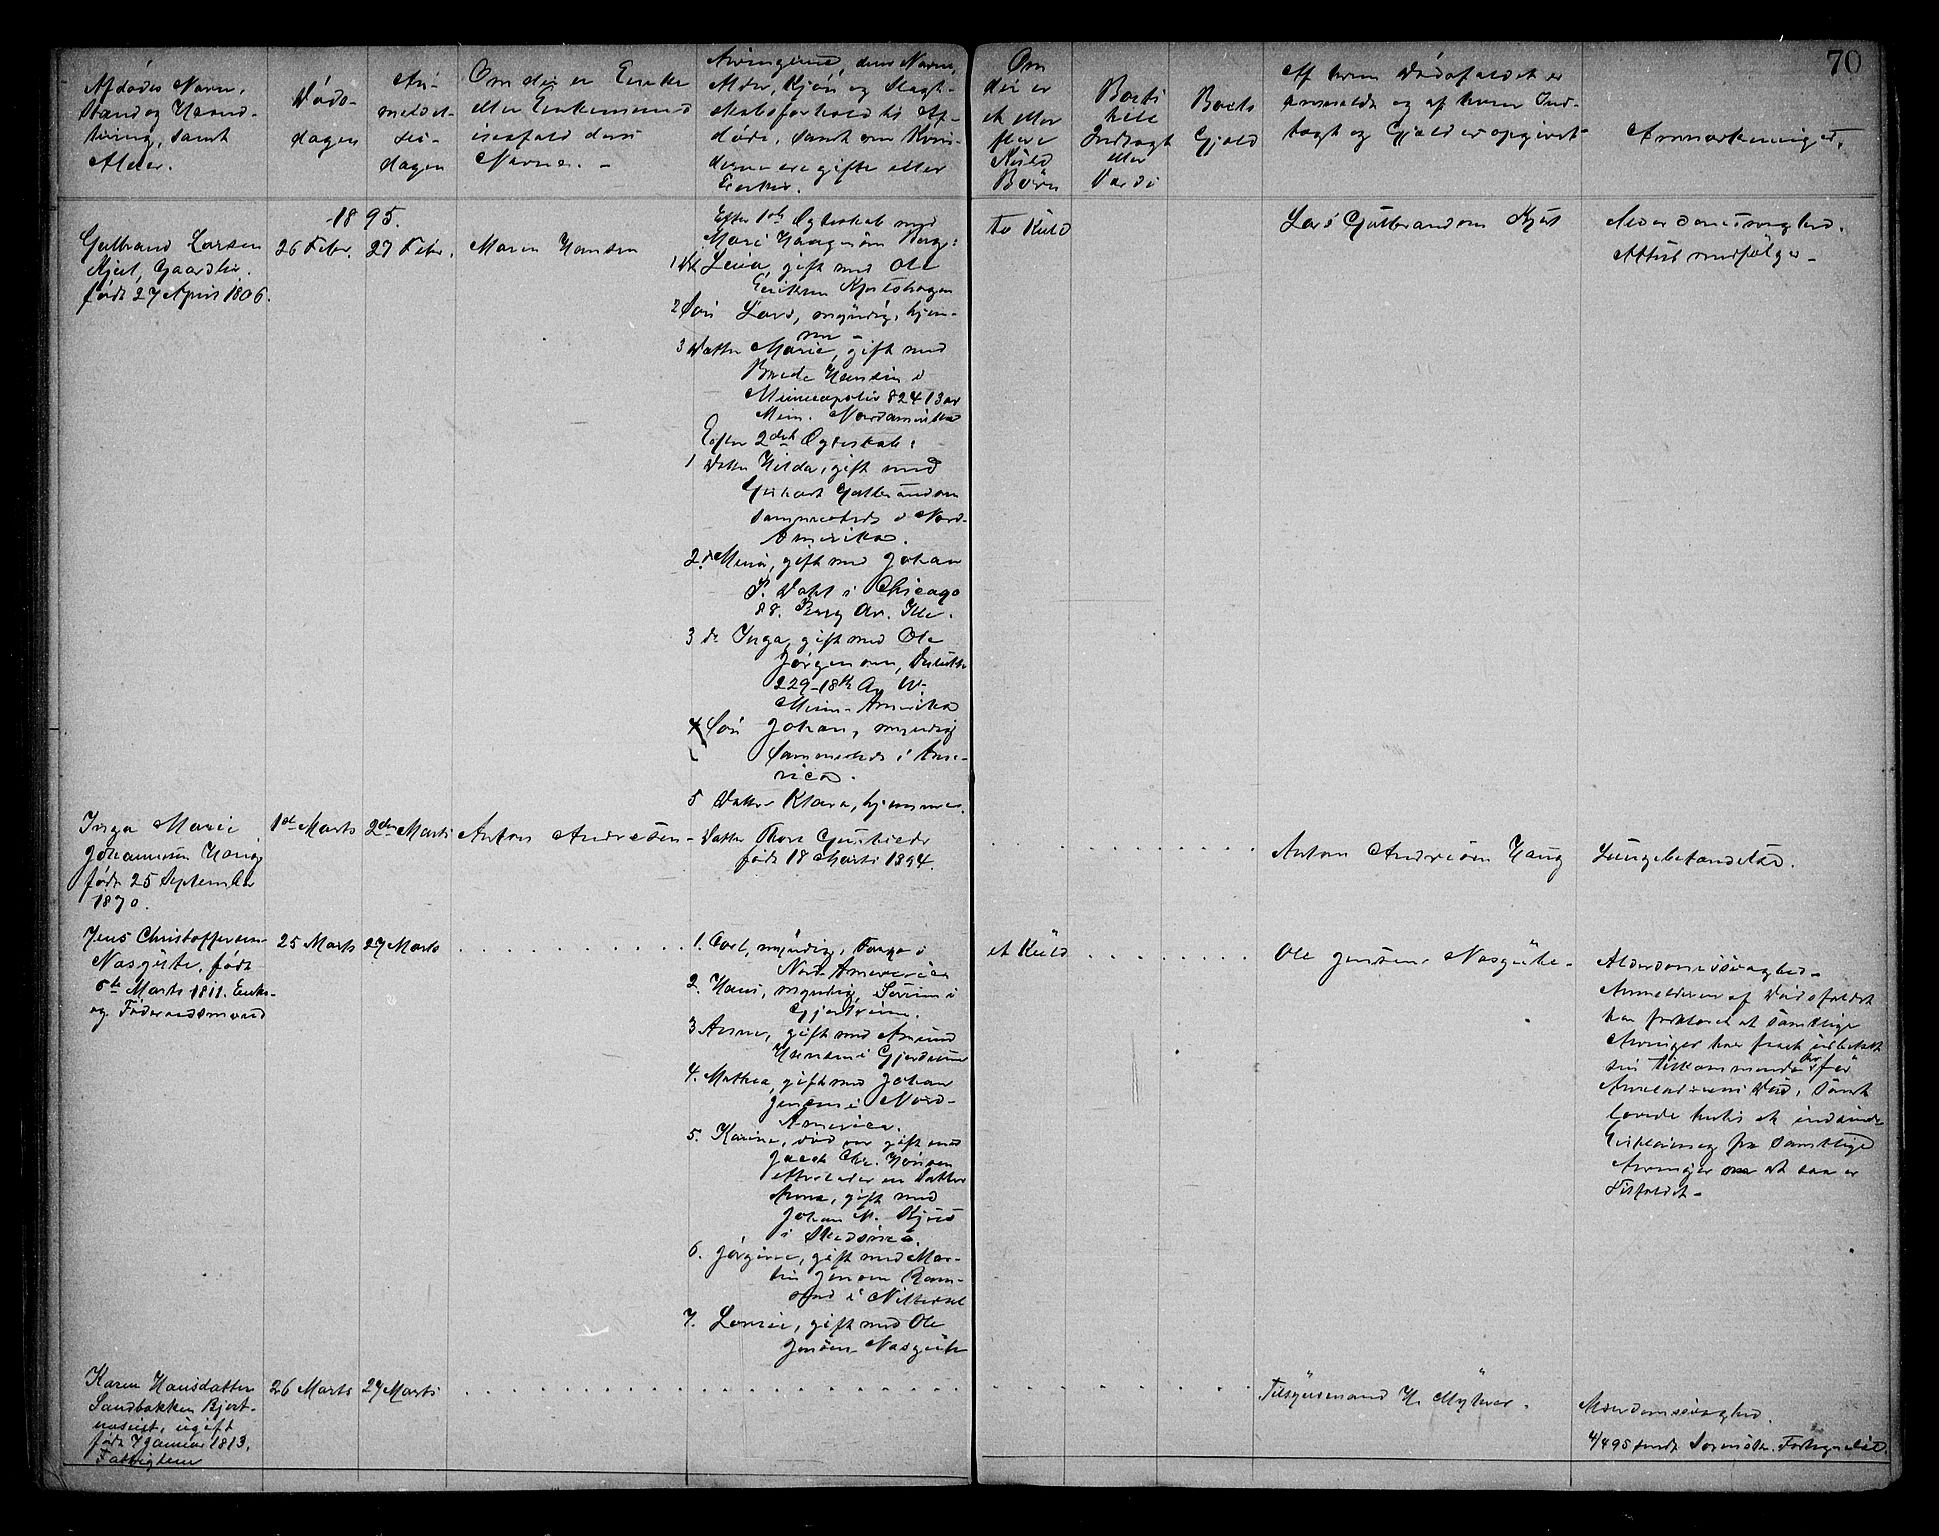 70
Afdødes Navn,
Stand og Haand-
tering, samt
Alder.
Døds-
dagen
An-
meldel-
ses-
dagen
Om der er Enke
eller Enkemand
i saafald dens
Navn. -
Arvingerne, deres Navne,
Alder, Kjøn og Slægt-
skabsforhold til Af-
døde, samt om Kvin-
derne ere gifte eller
Enker.
Om
der er
et eller
flere
Kuld
Børn
Boets
hele
Indtægt
eller
Værdi
Boets
Gjæld
Af hvem Dødsfaldet er
anmeldt og af hvem Ind-
tægt og Gjæld er opgivet
Anmærkninger.
1895.
Gulbrand Larsen
Kjest, Gaardbr.
født 27 April 1806.
26 Febr.
27 Febr.
Maren Hansen
Efter 1ste Ægteskab med
Mari
Lena, gift med Ole
Eriksen
2 Søn Lars, myndig, hjem-
me -
3 Datter Marie, gift med
Brede Hansen i
Minneapolis 824 13 av
Min. Nordamerika
Efter 2det Ægteskab:
1 Datter Hilda, gift med
Gulbrandsen
sammesteds i Nord-
Amerika.
2. d Mina, gift med Johan
P. Dahl i Chicago
88. Av. Ill.
3 do Inga, gift med Ole
Jørgensen, Duluth
229-18th Av W.
Minn- Amerika
4 Søn Johan, myndig
sammesteds i Ame-
rica.
5 Datter Klara, hjemme.
to Kuld
Lars Gulbrandsen Kjest
Alderdomssvaghed.
Attest medfølger -
Inga Marie
Johannesen Haug
født 25 September
1870.
1ste Marts
2den Marts
Anton Andresen -
Datter Thora
født 18 Marts 1894.
Anton Andresen Haug
Lungebetændelse.
Jens Christoffersen
Nasgute, født
5te Marts 1811. Enke-
og Føderaadsmand
25 Marts
27 Marts
1. Carl, myndig, Fargo i
Nord-America
2. Hans, myndig, i
Gjerdrum.
3 Anne, gift med Amund
Hansen i Gjerdrum
4. Mathea, gift med Johan
Jensen i Nord-
America.
5. Karine, død var gift med
Jacob Chr. Hansen
efterlader en Datter
Anna, gift med
Johan M.
i
6. Jørgine, gift med Mar-
tin Jensen Ram-
stad i Nittedal
7. Lovise, gift med Ole
Jensen Nasgute
et Kuld
Ole Jensen Nasgute -
Alderdomssvaghed -
Anmelderen af Dødsfaldet
har forklaret at samtlige
Arvinger har faaet udbetalt
sin tilkommende Arv før
Død, samt
lovede hertil at indsende
Erklæring fra samtlige
Arvinger om at saa er
Tilfældet -
Karen Hansdatter
Sandbakken Bjert-
næseiet, ugift
født 7 Januar 1813.
Fattiglem
26 Marts
27 Marts
Tilsynsmand H. Myhrer.
Alderdomssvaghed.
4/4 95 sendt Fortegnelse.